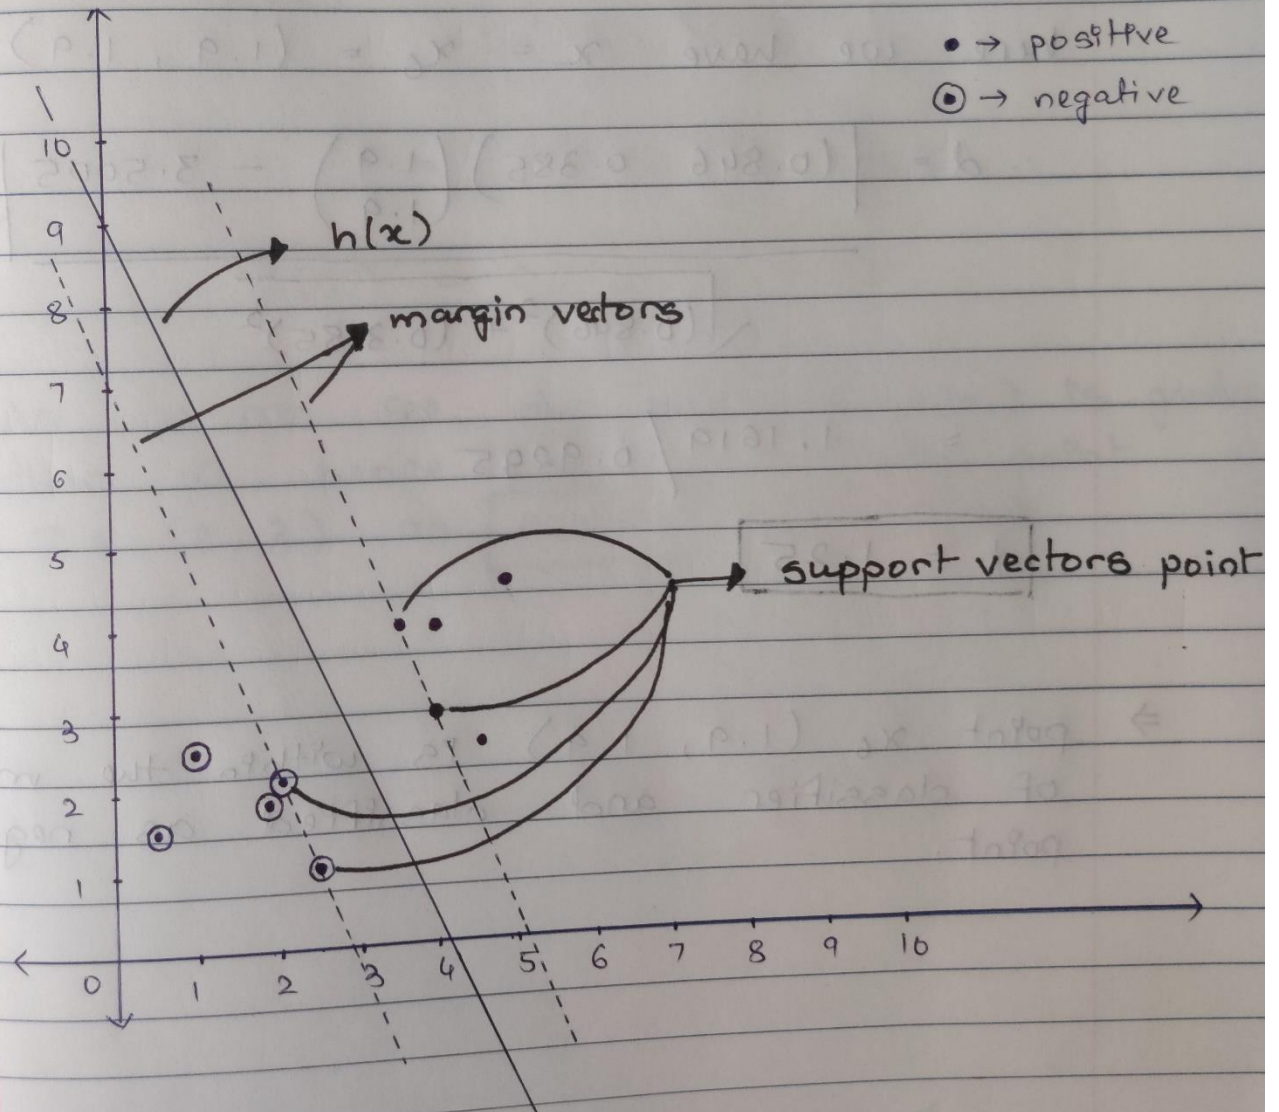 • → positive
⊙ → negative
10
9
h(x)
8
margin vectors
7
6
5
support vectors point
4
3
2
1
0 1 2 3 4 5 6 7 8 9 10